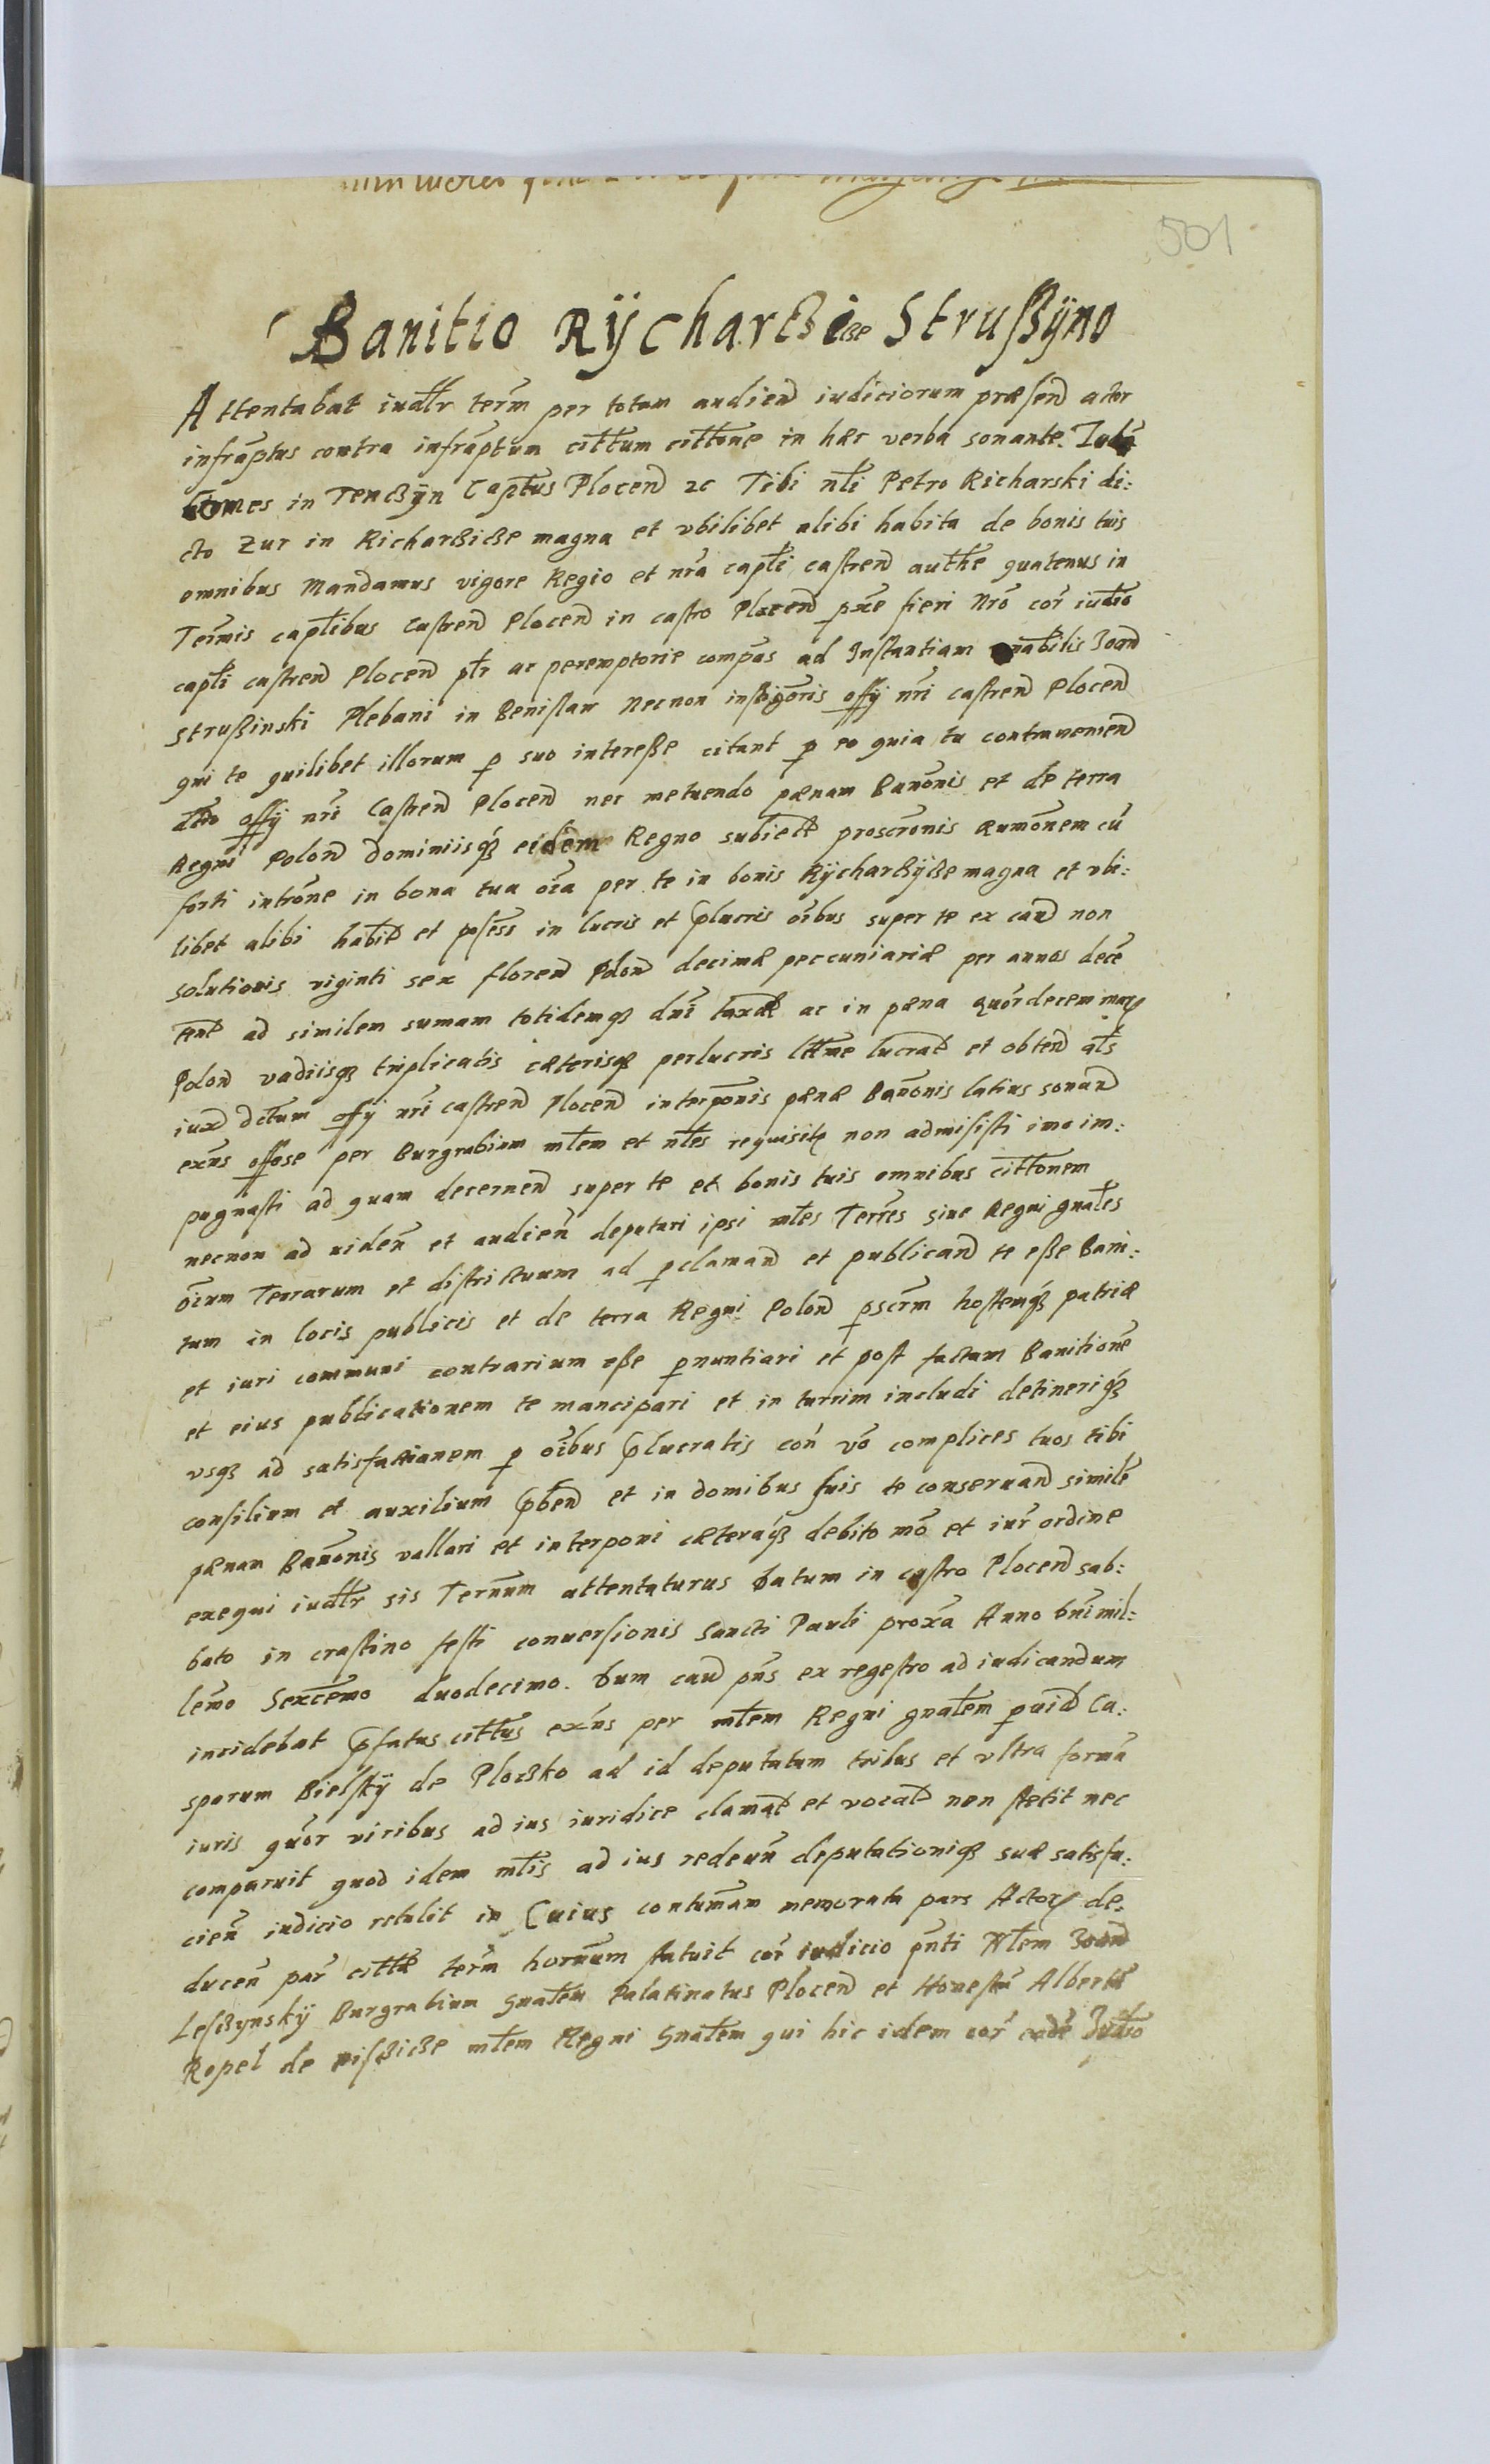 501
Banitio Rÿcharcßicze Strußÿno
Attentabat iudtlr term̄ per totum audien̄ iudiciorum præsen̄ actor
infraptus contra infraptum cittum cittone in hæc verba sonante.
Comes in Tenczÿn Captus Plocen̄ 2c Tibi nłi Petro Richarski di:
cto Zur in Richarczicze magna et vbilibet alibi habita de bonis tuis
omnibus Mandamus vigore Regio et nrā capłi castren̄ authe quatenus in
Termis capłibus Castren̄ Plocen̄ in castro Plocen̄ pxe fieri Nrō cor iudio
capłi castren̄ Plocen̄ ptr ac peremptorie compas ad Instantiam nabilis Joan̄
Strußinski Plebani in Benislaw Necnon instigoris offÿ nrī castren̄ Plocen̄
qui te quilibet illorum p suo intereße citant p eo quia tu contravenien̄
dtto offÿ nrī Castren̄ Plocen̄ nec metuendo pænam Banonis et de terra
Regni Polon̄ dominiisqz eidem Regno subiect proscronis rumonem cū
forti introne in bona tua oīa per te in bonis Rÿcharczÿcze magna et vbi:
libet alibi habit et poseß in lucris et plucris oībus super te ex cau non
solutionis viginti sex floren̄ Polon̄ decimæ peccuniariæ per annos decē
tent ad similem sumam totidemqz dnī taxat ac in pæna quor decem marc
Polon̄ vadiisqz triplicatis cæterisqz perlucris lttme lucrat et obten̄ als
iux dctum offÿ nrī castren̄ Plocen̄ interponis pænæ Banonis latius sonan̄
exns offose per Burgrabium mtem et ntes requisite non admisisti imo im:
pugnasti ad quam decernen̄ super te et bonis tuis omnibus cittonem
necnon ad viden̄ et audien̄ deputari ipsi mtes Terres sine Regni gnales
oīum Terrarum et districtuum ad pclaman̄ et publican̄ te eße Bani:
tum in locis publicis et de terra Regni Polon̄ pscrm hostemqz patriæ
et iuri communi contrarium eße pnuntiari et post factam Banitionē
et eius publicationem te mancipari et in turrim includi detineriqz
vsqz ad satisfactianem p oībus plucratis con vō complices tuos tibi
consilium et auxilium pben̄ et in domibus suis te conseruan̄ similē
pænam Banonis vallari et interponi cæteraqz debito mō et iur ordine
exequi iudtlr sis Ternum attentaturus Datum in castro Plocen̄ sab:
bato in crastino festi conuersionis Sancti Pauli proxa Anno Dnī mil:
lemo Sexcemo duodecimo. Dum cau pns ex regestro ad iudicandum
incidebat pfatus cittus exns per mtem Regni gnalem puid Ca:
sparum Bielskÿ de Ploczko ad id deputatum tribus et vltra formā
iuris quor vicibus ad ius iuridice clamat et vocat non stetit nec
comparuit quod idem mtis ad ius redeun̄ deputationiqz suæ satisfa:
cien̄ iudicio retulit in Cuius contumam memorata pars Actor de:
ducen̄ par cittæ term hornum statuit cor iudicio pnti Ntem Joan̄
Lesczynskÿ Burgrabium Gnalem Palatinatus Plocen̄ et Honestū Albertū
Ropel de misczicze mtem Regni Gnalem qui hic idem cor eodē Judio